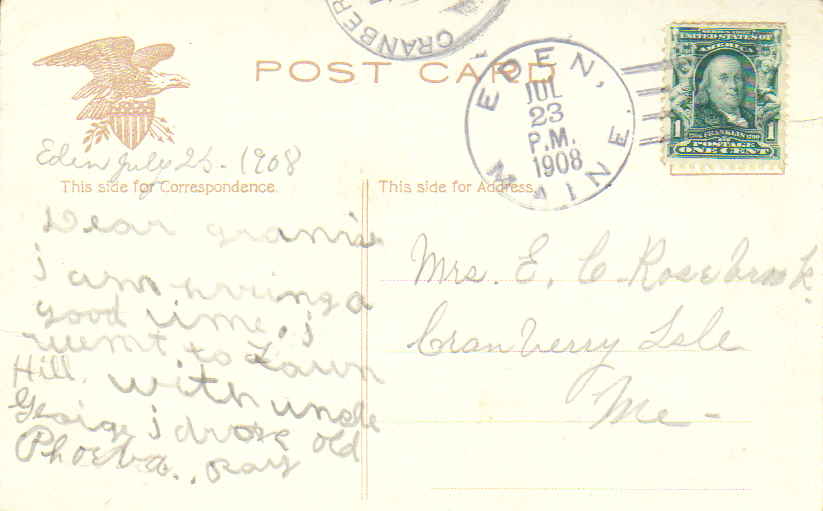 CRANBER
POST CARD
EDEN,
JUL
23
P.M.
1908
MAINE.
SERIES 1902
UNITED STATES OF
AMERICA
1
FRANKLIN
1
POSTAGE
ONE CENT
Eden July 23 - 1908
This side for Correspondence.
This side for Address.
Dear granie
i am having a
good time, i
went to Town
Hill. with uncle
George i drove old
Phoeba.. ray
Mrs. E. C. Rosebrook
Cranberry Isle
Me -